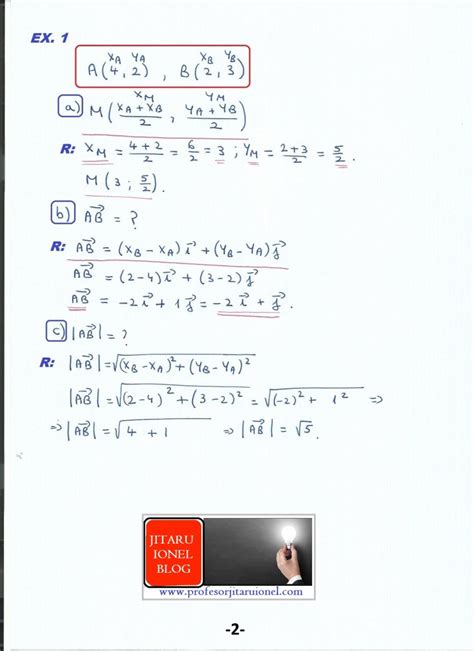 EX. 1
x_A y_A x_B y_B
A(4, 2) , B(2, 3)
x_M y_M
a) M((x_A + x_B)/2 , (y_A + y_B)/2)
R: x_M = (4+2)/2 = 6/2 = 3 ; y_M = (2+3)/2 = 5/2 .
M(3 ; 5/2).
b) AB⃗ = ?
R: AB⃗ = (x_B − x_A) i⃗ + (y_B − y_A) j⃗
AB⃗ = (2−4) i⃗ + (3−2) j⃗
AB⃗ = −2 i⃗ + 1 j⃗ = −2 i⃗ + j⃗ .
c) |AB⃗| = ?
R: |AB⃗| = √((x_B − x_A)² + (y_B − y_A)²)
|AB⃗| = √((2−4)² + (3−2)²) = √((−2)² + 1²) ⇒
⇒ |AB⃗| = √(4 + 1) ⇒ |AB⃗| = √5 .
JITARU
IONEL
BLOG
www.profesorjitaruionel.com
-2-